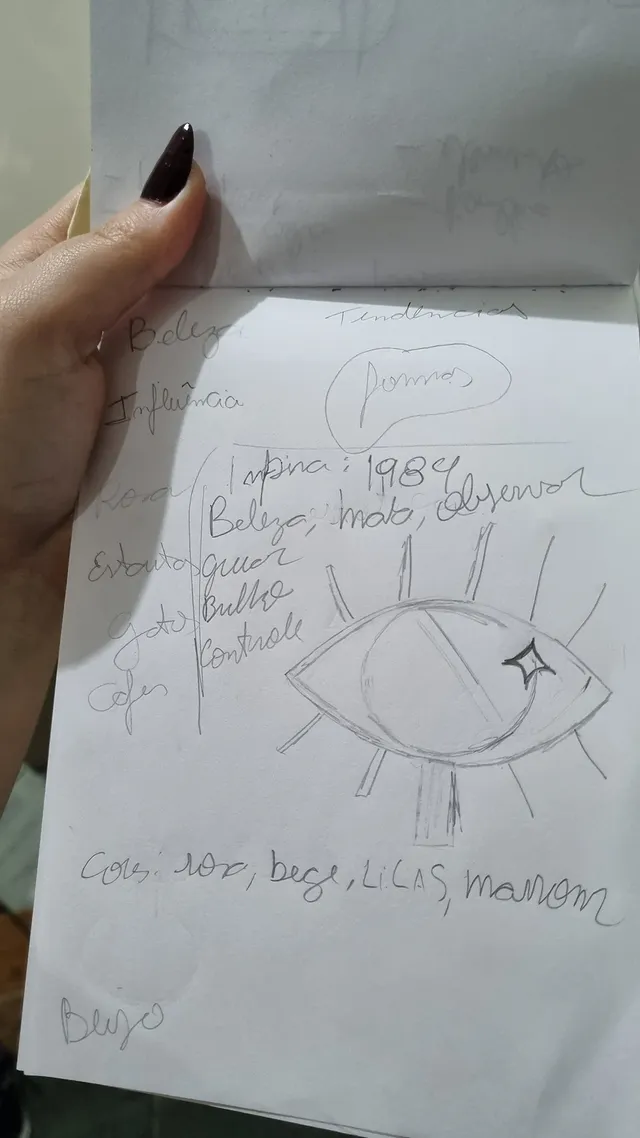 Beleza
Tendências
Influência
formas
Inspira: 1984
Beleza, moto, observar
Rosa
Estantes
Brilho
gatos
controle
Cores: rosa, bege, LiLAS, marrom
Beijo